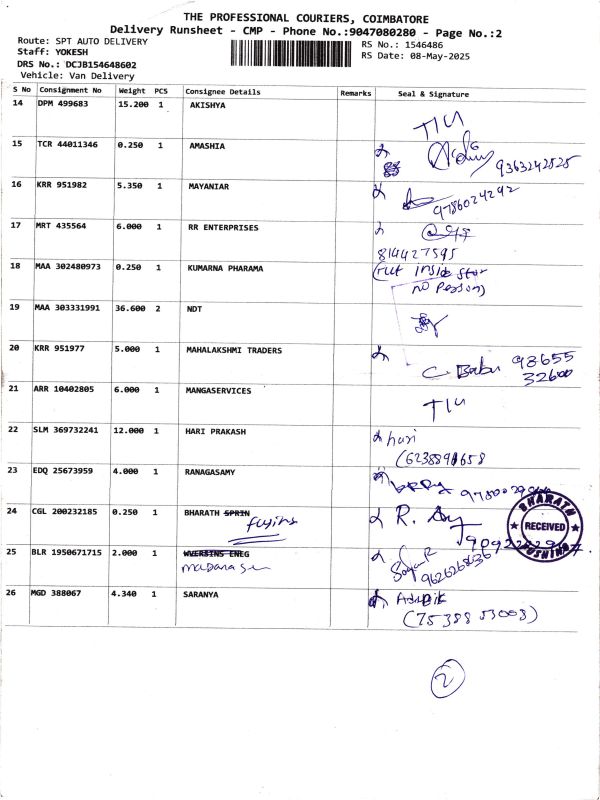 THE PROFESSIONAL COURIERS, COIMBATORE
Delivery Runsheet - CMP - Phone No.:9047080280 - Page No.:2
Route: SPT AUTO DELIVERY
RS No.: 1546486
Staff: YOKESH
RS Date: 08-May-2025
DRS No.: DCJB154648602
Vehicle: Van Delivery
S No Consignment No Weight PCS Consignee Details Remarks Seal & Signature
14 DPM 499683 15.200 1 AKISHYA
15 TCR 44011346 0.250 1 AMASHIA 9363242525
16 KRR 951982 5.350 1 MAYANIAR 9786024292
17 MRT 435564 6.000 1 RR ENTERPRISES
814427595
18 MAA 302480973 0.250 1 KUMARNA PHARAMA inside
no Person)
19 MAA 303331991 36.600 2 NDT
20 KRR 951977 5.000 1 MAHALAKSHMI TRADERS C. Babu 98655
32600
21 ARR 10402805 6.000 1 MANGASERVICES
22 SLM 369732241 12.000 1 HARI PRAKASH hari
23 EDQ 25673959 4.000 1 RANAGASAMY
24 CGL 200232185 0.250 1 BHARATH SPRIN R.
BHARATH RECEIVED
25 BLR 1950671715 2.000 1
9626268036
26 MGD 388067 4.340 1 SARANYA
(75388 53003)
2